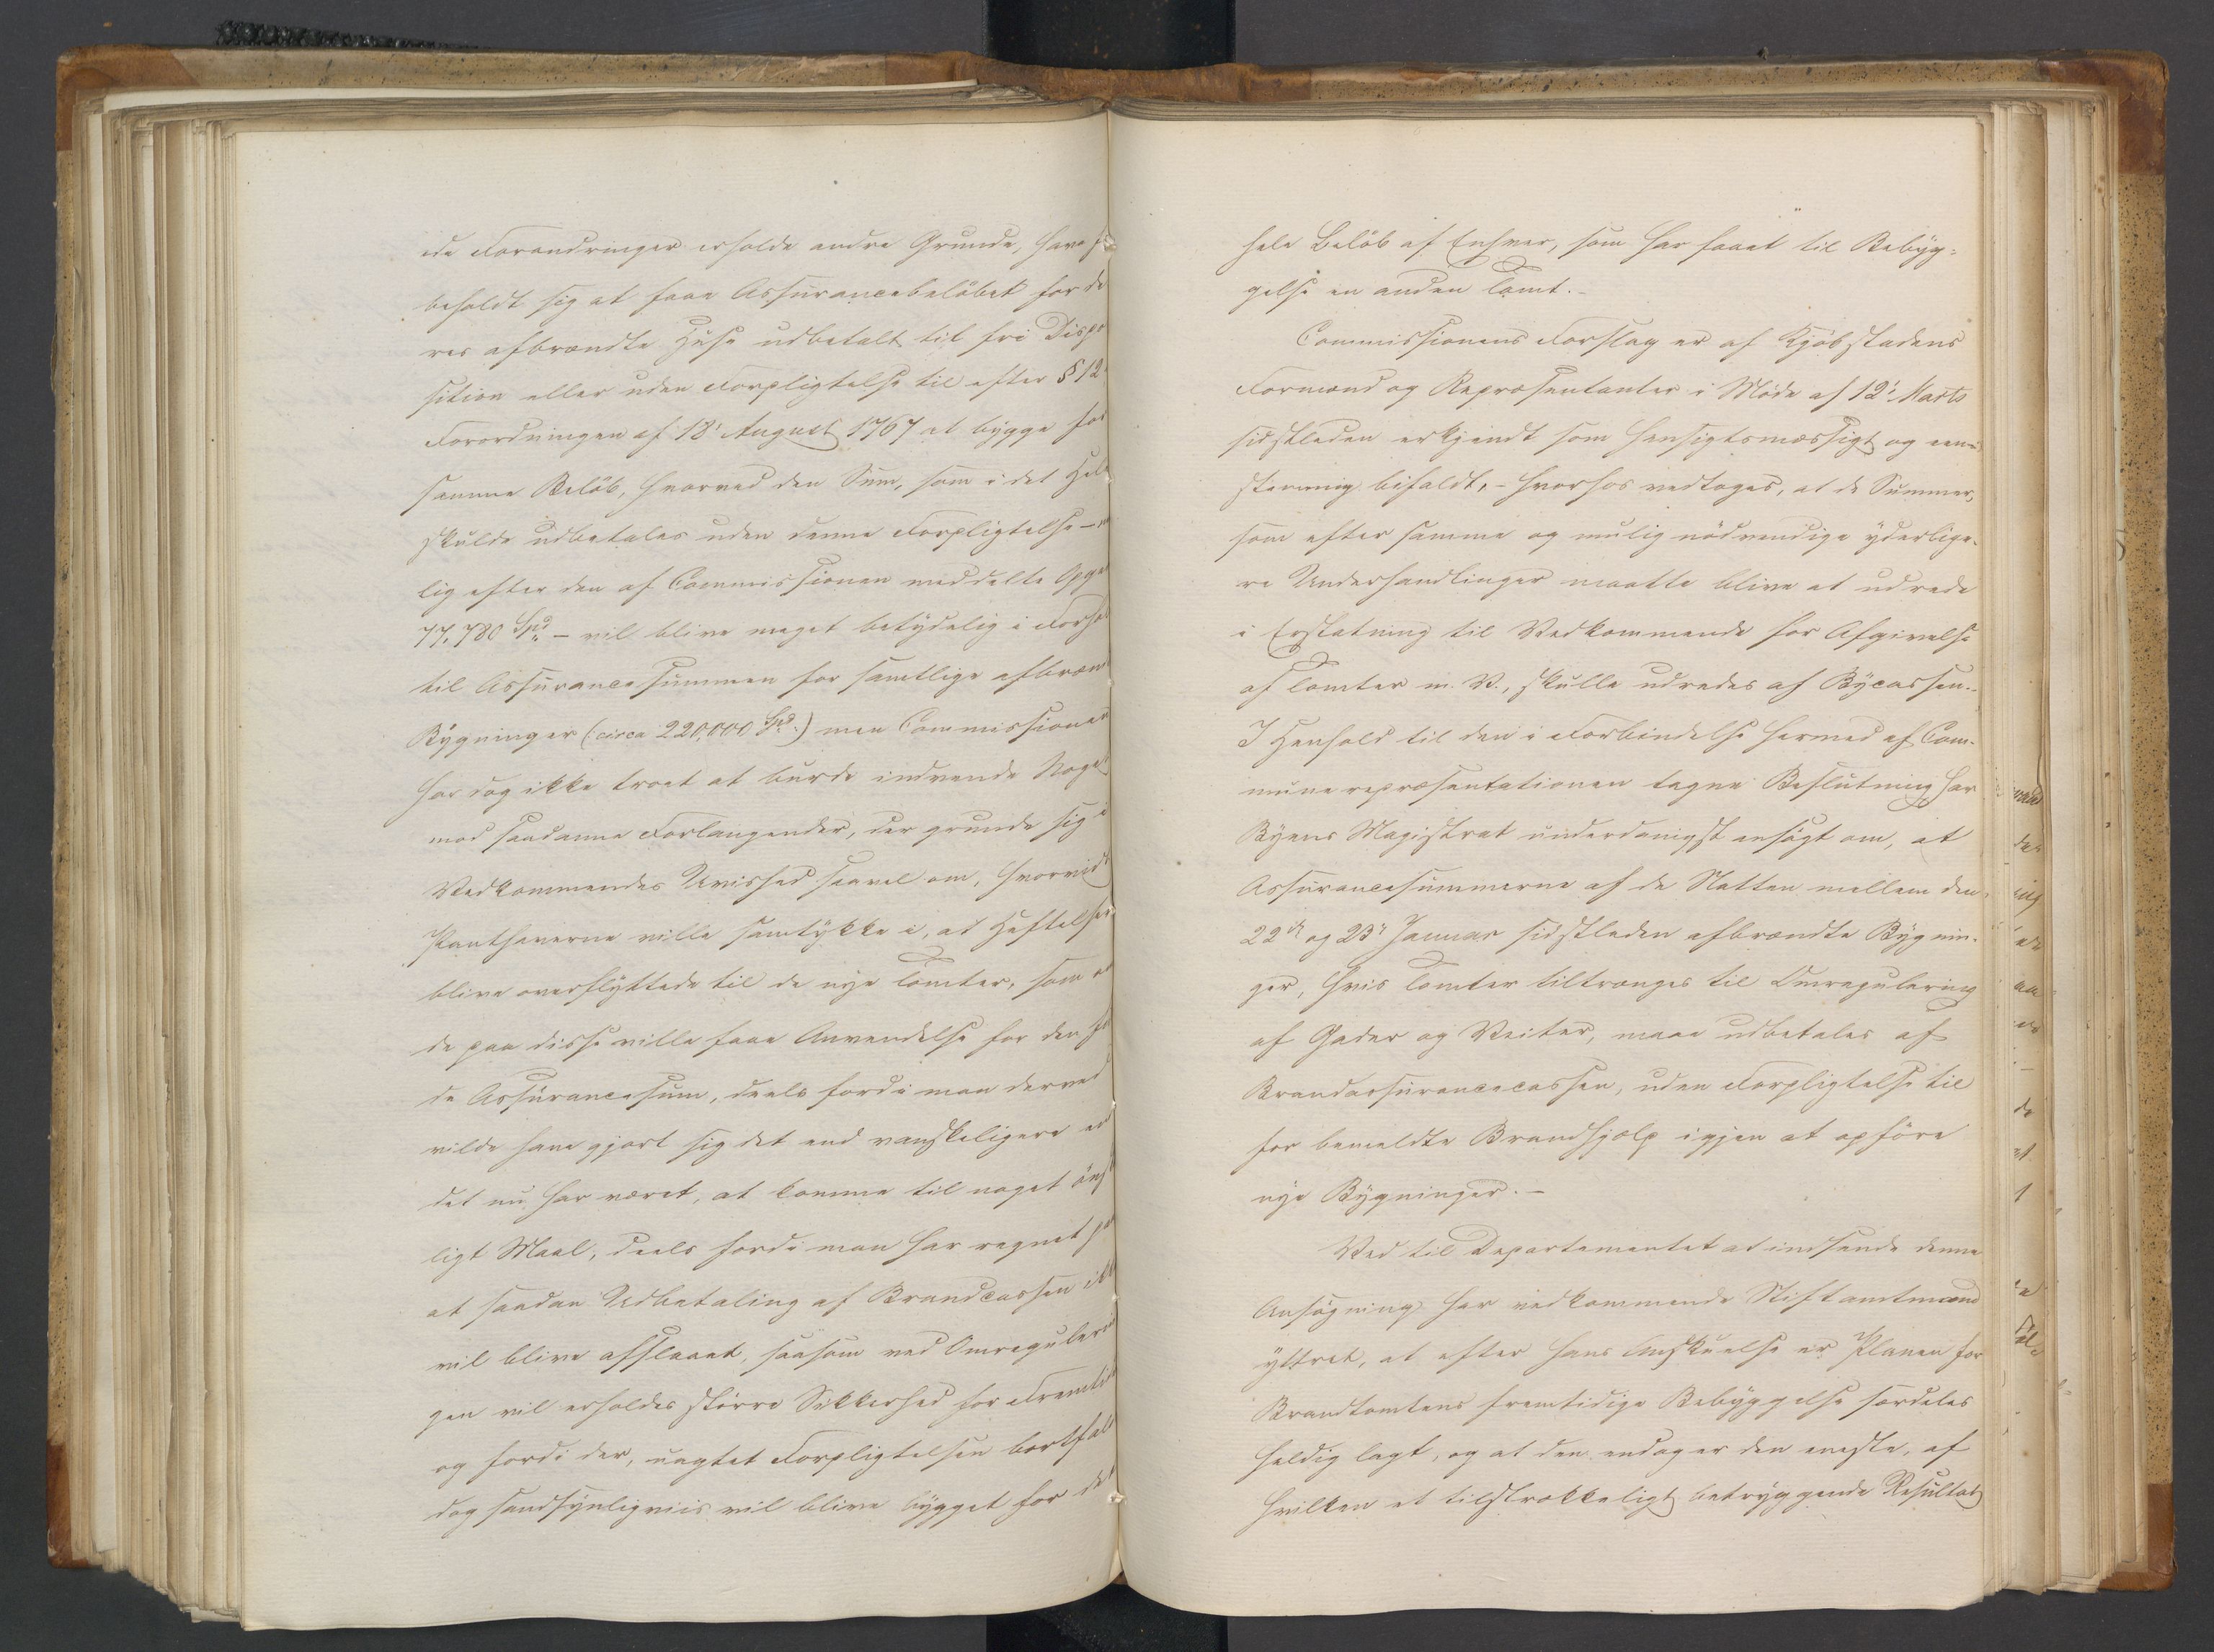 ede Forandringer erholde andre Grunde, have fo
beholdt sig at faae Assurancebeløbet for de
res afbrændte Huse udbetalt til fri Dispo
sition eller uden Forpligtelse til efter § 12
Forordningen af 18' August 1767 at bygge for
samme Beløb, hvorved den Sum, som i det Hele
skulde udbetales uden denne Forpligtelse -
lig efter den af Commissionen meddelte Opga
77,780 Spd - vil blive meget betydelig i Forho
til Assurancesummen for samtlige afbrænd
Bygninger (: circa 220,000 Spd :) men Commissionen
har dog ikke troet at burde indvende Noget
mod saadanne Forlangender, der grunde sig i
Vedkommendes Uvished saavel om, hvorvidt
Panthaverne ville samtykke i, at Heftelser
blive overflyttede til de nye Tomter, som
de paa disse ville faae Anvendelse for den
de Assurancesum, deels fordi man derved
vilde have gjort sig det end vanskeligere end
det nu har været, at komme til noget öns
ligt Maal, deels fordi man har regnet pa
at saadan Udbetaling af Brandcassen ikk
vil blive afslaaet, saasom ved Omregulerin
gen vil erholdes større Sikkerhed for Fremtid
og fordi der, uagtet Forpligtelsen bortfald
dog sandsynligviis vil blive bygget for det
hele Beløb af Enhver, som har faaet til Bebyg-
gelse en anden Tomt. -
Commissionens Forslag er af Kjøbstadens
Formænd og Repræsentanter i Møde af 12' Marts
sidstleden erkjendt som hensigtsmæssigt og een-
stemmig bifaldt, - hvorhos vedtoges, at de Summer,
som efter samme og mulig nödvendige yderlige-
re Underhandlinger maatte blive at udrede
i Erstatning til Vedkommende for Afgivelse
af Tomter m. V., skulle udredes af Bycassen. -
I Henhold til den i Forbindelse hermed af Com-
munerepræsentationen tagne Beslutning har
Byens Magistrat underdanigst ansøgt om, at
Assurancesummerne af de Natten mellem den
22de og 23' Januar sidstleden afbrændte Bygnin-
ger, hvis Tomter tiltrænges til Omregulering
af Gader og Veiter, maae udbetales af
Brandassurancecassen, uden Forpligtelse til
for bemeldte Brandhjælp igjen at opføre
nye Bygninger. -
Ved til Departementet at indsende denne
Ansøgning har vedkommende Stiftamtmand
yttret, at efter hans Anskuelse er Planen for
Brandtomtens fremtidige Bebyggelse særdeles
heldig lagt, og at den endog er den eneste, af
hvilken et tilstrækkeligt betryggende Resultat